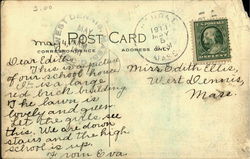 3.00
WEST DENNIS
1911
MASS.
POST CARD
CORRESPONDENCE
ADDRESS ONLY
Dear Edith,
This is a picture
of our school house.
It is a large
red brick building
The lawn is
lovely and green
Let the girls see
this. We are down
stairs and the high
school is up.
From Eva.
Miss Edith Ellis,
West Dennis,
Mass.